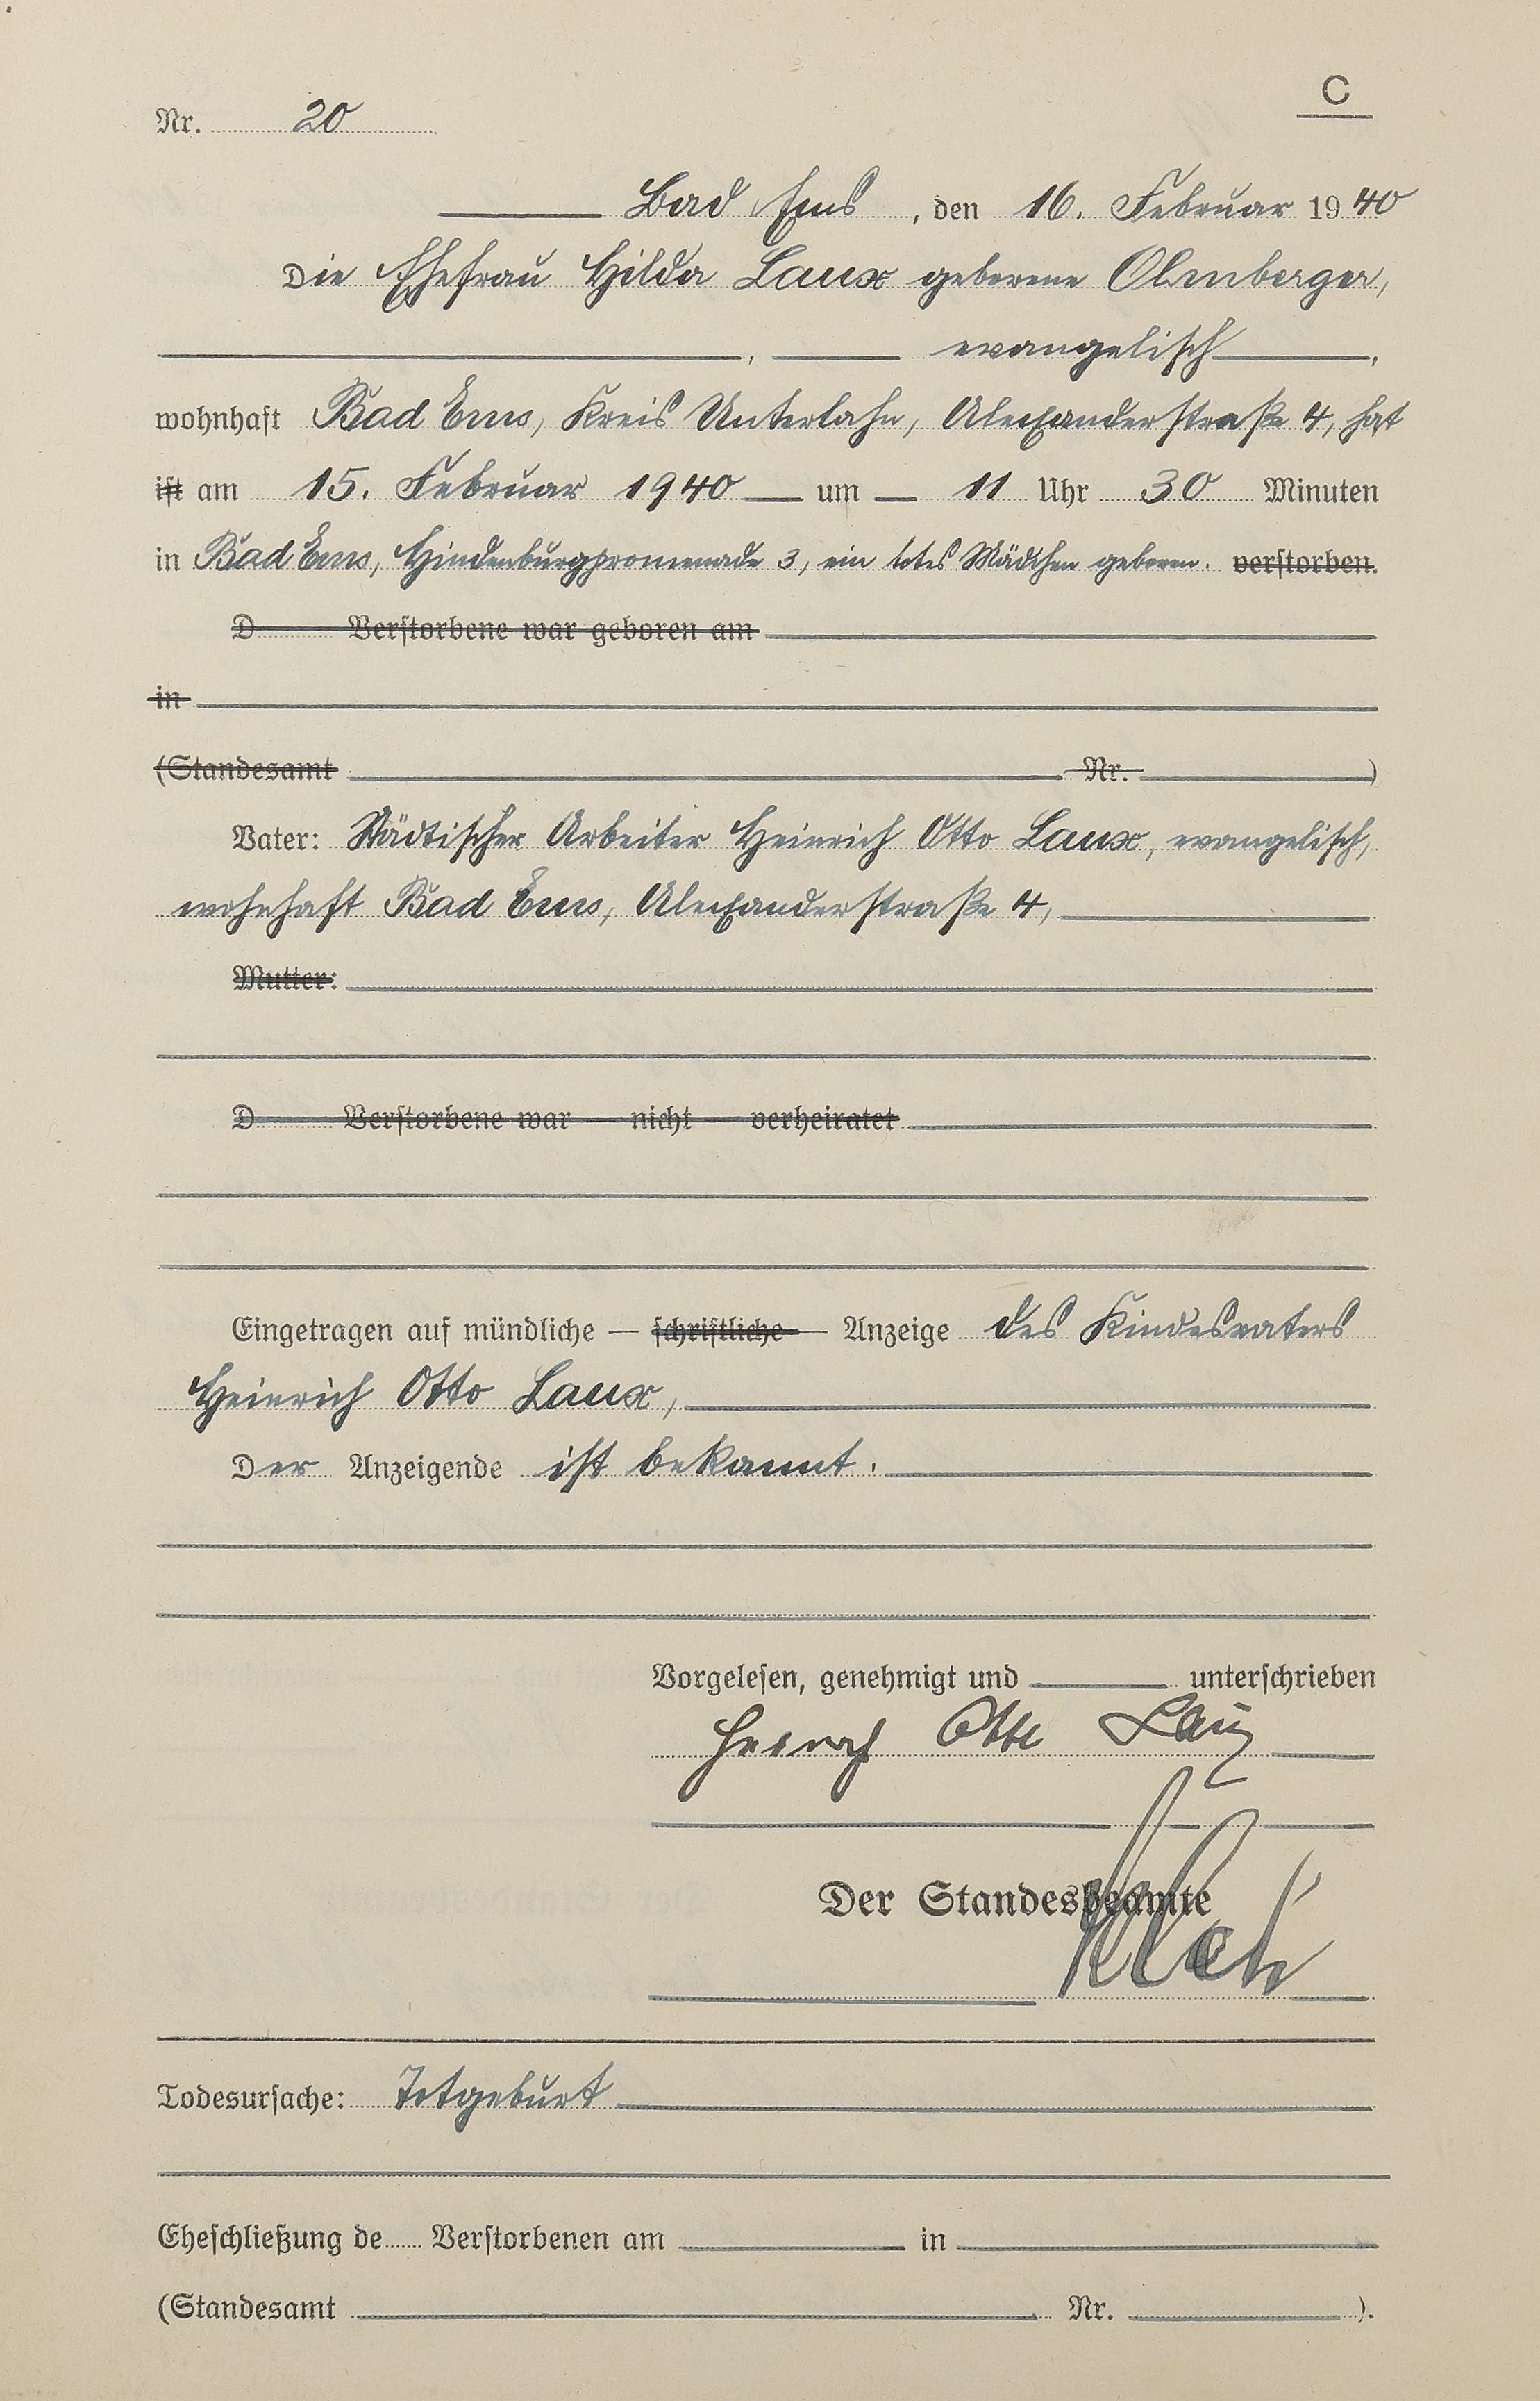 C
Nr. 20
Bad Ems, den 16. Februar 1940
Die Ehefrau Hilda Laux geborene
evangelisch,
wohnhaft Bad Ems, Kreis Unterlahn, Alexanderstraße 4, hat
ist am 15. Februar 1940 um 11 Uhr 30 Minuten
in Bad Ems, Hindenburgpromenade 3, ein totes Mädchen geboren. verstorben.
D Verstorbene war geboren am
in
(Standesamt Nr. )
Vater: Städtischer Arbeiter Heinrich Otto Laux, evangelisch,
wohnhaft Bad Ems, Alexanderstraße 4,
Mutter:
D Verstorbene war — nicht — verheiratet
Eingetragen auf mündliche — schriftliche — Anzeige des Kindesvaters
Heinrich Otto Laux,
Der Anzeigende ist bekannt.
Vorgelesen, genehmigt und unterschrieben
Heinrich Otto Laux
Der Standesbeamte
Todesursache: Totgeburt
Eheschließung de Verstorbenen am in
(Standesamt Nr. ).